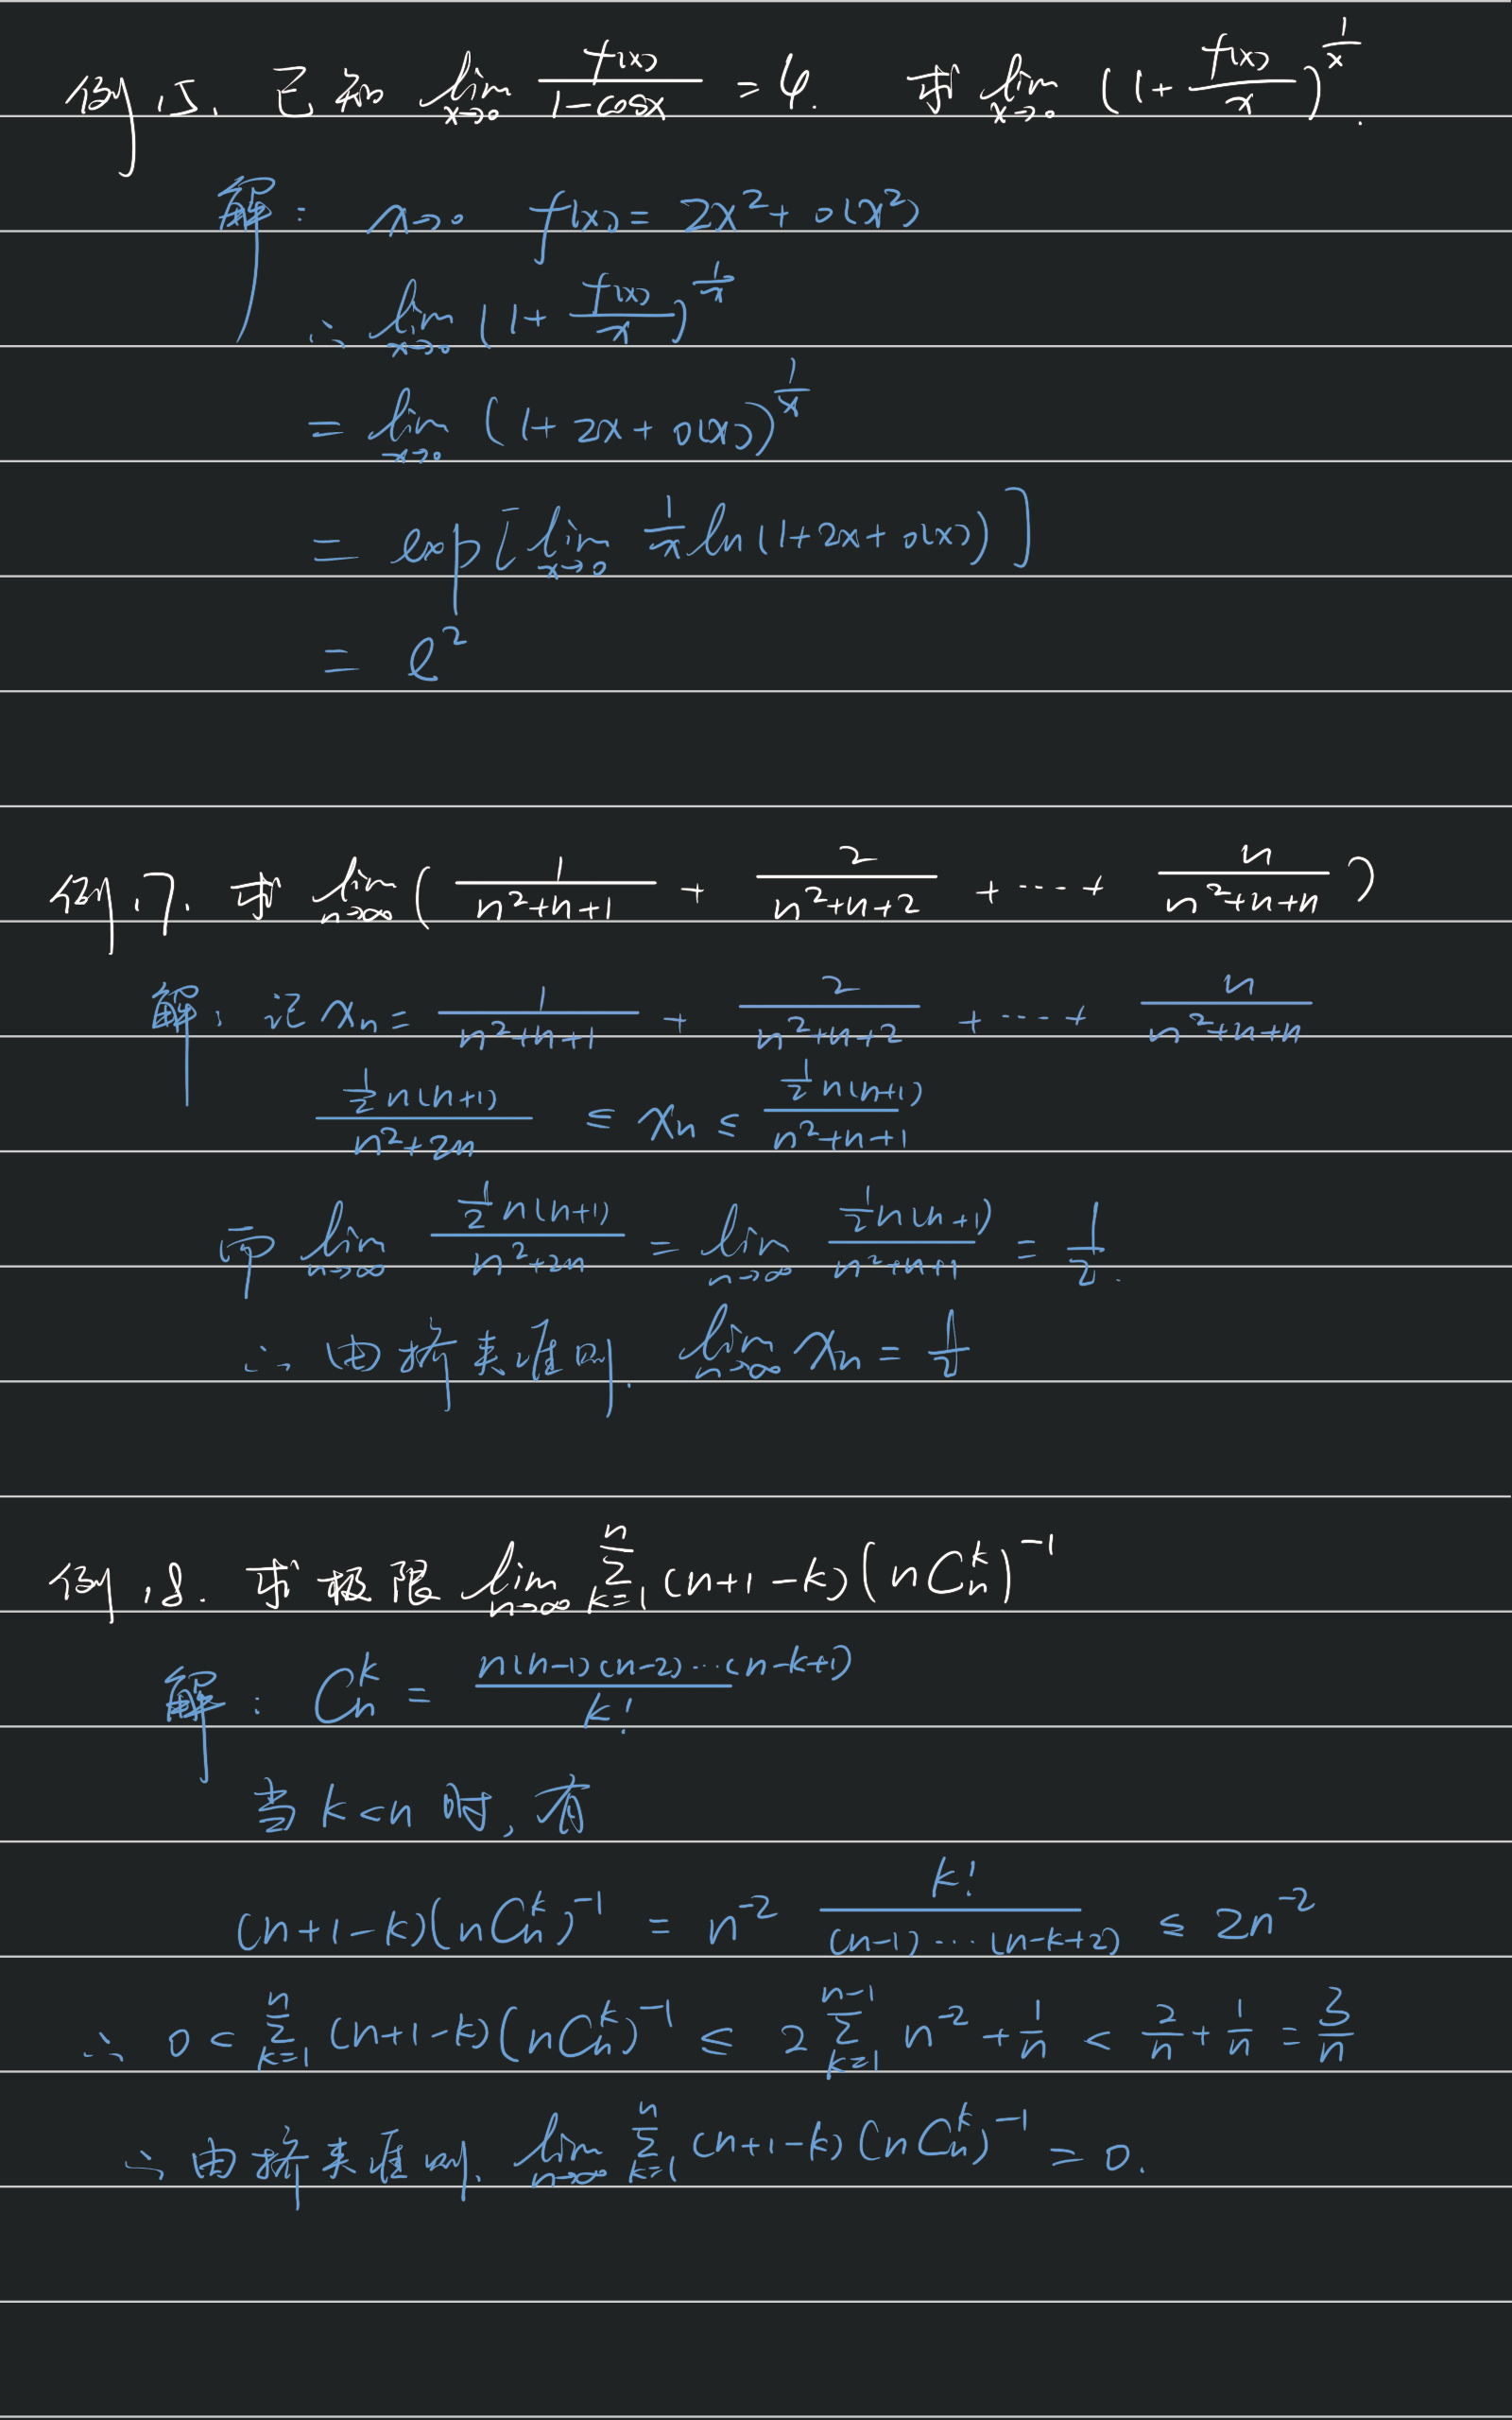 例15. 已知 lim_{x→0} f(x)/(1-cosx) = 4. 求 lim_{x→0} (1+ f(x)/x)^{1/x}.
解: x→0 f(x) = 2x²+o(x²)
∴ lim_{x→0} (1+ f(x)/x)^{1/x}
= lim_{x→0} (1+2x+o(x))^{1/x}
= exp[lim_{x→0} 1/x ln(1+2x+o(x))]
= e²
例17. 求 lim_{n→∞} ( 1/(n²+n+1) + 2/(n²+n+2) + ⋯ + n/(n²+n+n) )
解: 记 xₙ = 1/(n²+n+1) + 2/(n²+n+2) + ⋯ + n/(n²+n+n)
(1/2 n(n+1))/(n²+2n) ≤ xₙ ≤ (1/2 n(n+1))/(n²+n+1)
而 lim_{n→∞} (1/2 n(n+1))/(n²+2n) = lim_{n→∞} (1/2 n(n+1))/(n²+n+1) = 1/2.
∴ 由挤夹准则. lim_{n→∞} xₙ = 1/2
例18. 求极限 lim_{n→∞} Σ_{k=1}^{n} (n+1-k)(nC_n^k)^{-1}
解: C_n^k = n(n-1)(n-2)⋯(n-k+1)/k!
当 k<n 时, 有
(n+1-k)(nC_n^k)^{-1} = n^{-2} k!/((n-1)⋯(n-k+2)) ≤ 2n^{-2}
∴ 0 < Σ_{k=1}^{n} (n+1-k)(nC_n^k)^{-1} ≤ 2 Σ_{k=1}^{n-1} n^{-2} + 1/n < 2/n + 1/n = 3/n
∴ 由挤夹准则. lim_{n→∞} Σ_{k=1}^{n} (n+1-k)(nC_n^k)^{-1} = 0.